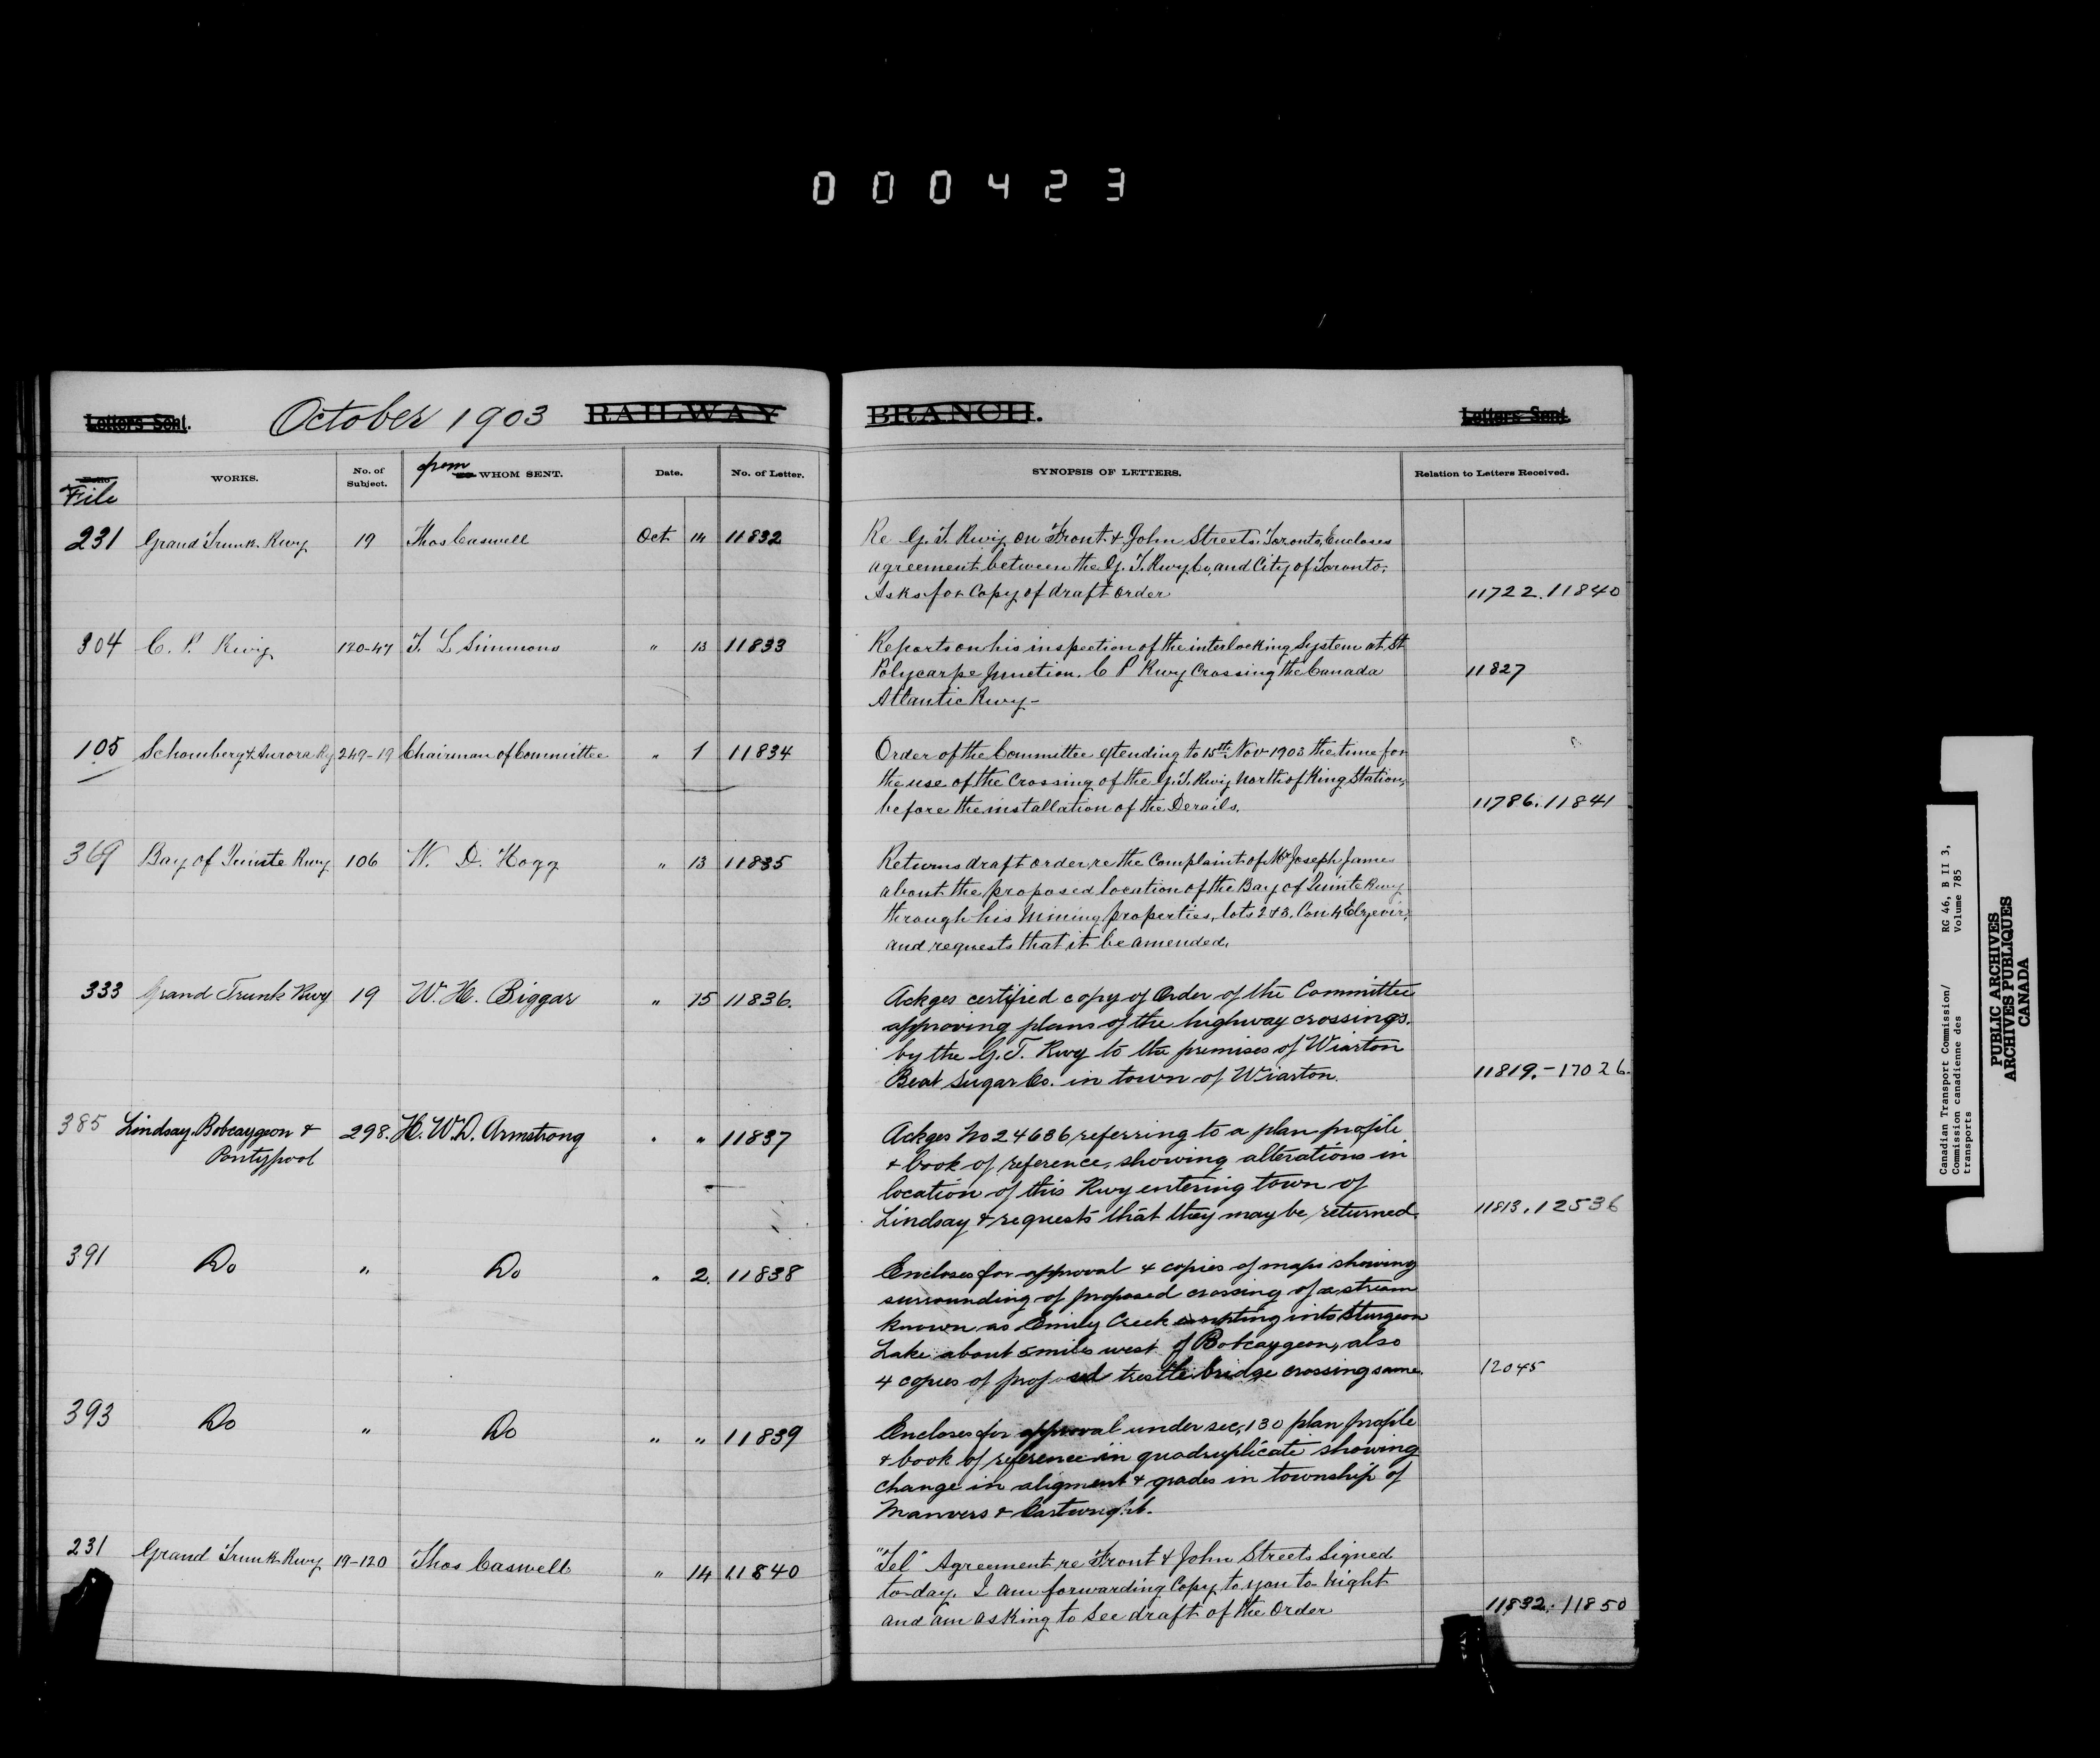 000423
Letters Sent. October 1903 RAILWAY BRANCH. Letters Sent.
File WORKS. No. of Subject. from WHOM SENT. Date. No. of Letter. SYNOPSIS OF LETTERS. Relation to Letters Received.
231 Grand Trunk Rwy 19 Thos Caswell Oct 14 11832 Re G. T. Rwy on Front & John Streets Toronto, Encloses
agreement between the G. T. Rwy Co, and City of Toronto.
Asks for Copy of draft order 11722. 11840
304 C. P. Rwy 120-47 T. L. Simmons " 13 11833 Reports on his inspection of the interlocking System at St
Polycarpe Junction. C P Rwy Crossing the Canada 11827
Atlantic Rwy-
105 Schomberg & Aurora Ry 249-19 Chairman of Committee " 1 11834 Order of the Committee extending to 15th Nov 1903 the time for
the use of the Crossing of the G. T. Rwy North of King Station,
before the installation of the Derails. 11786. 11841
369 Bay of Quinte Rwy 106 W. D. Hogg " 13 11835 Returns draft order, re the Complaint of Mr Joseph James
about the proposed location of the Bay of Quinte Rwy
through his Mining properties, lots 2 & 3. Con 4 Elzevir,
and requests that it be amended.
333 Grand Trunk Rwy 19 W. H. Biggar " 15 11836. Ackges certified copy of Order of the Committee
approving plans of the highway crossings.
by the G. T. Rwy to the premises of Wiarton
Beat Sugar Co. in town of Wiarton. 11819.-17026.
385 Lindsay Bobcaygeon & 298. H. W. D. Armstrong " " 11837 Ackges No 24636 referring to a plan profile
Pontypool & book of reference, showing alterations in
location of this Rwy entering town of
Lindsay & requests that they may be returned. 11813. 12536
391 Do " Do " 2. 11838 Encloses for approval 4 copies of maps showing
surrounding of proposed crossing of a stream
known as Emily Creek into Sturgeon
Lake about 5 miles west of Bobcaygeon, also
4 copies of proposed trestle bridge crossing same. 12045
393 Do " Do " " 11839 Encloses for approval under sec, 130 plan profile
& book of reference in quadruplicate showing
change in aligment & grades in township of
Manvers & Cartwright.
231 Grand Trunk Rwy 19-120 Thos Caswell " 14 11840 "Tel" Agreement re Front & John Streets Signed
to-day. I am forwarding Copy to you to-night
and am asking to See draft of the Order 11832. 11850
Canadian Transport Commission/ RG 46, B II 3,
Commission canadienne des Volume 785
transports
PUBLIC ARCHIVES
ARCHIVES PUBLIQUES
CANADA